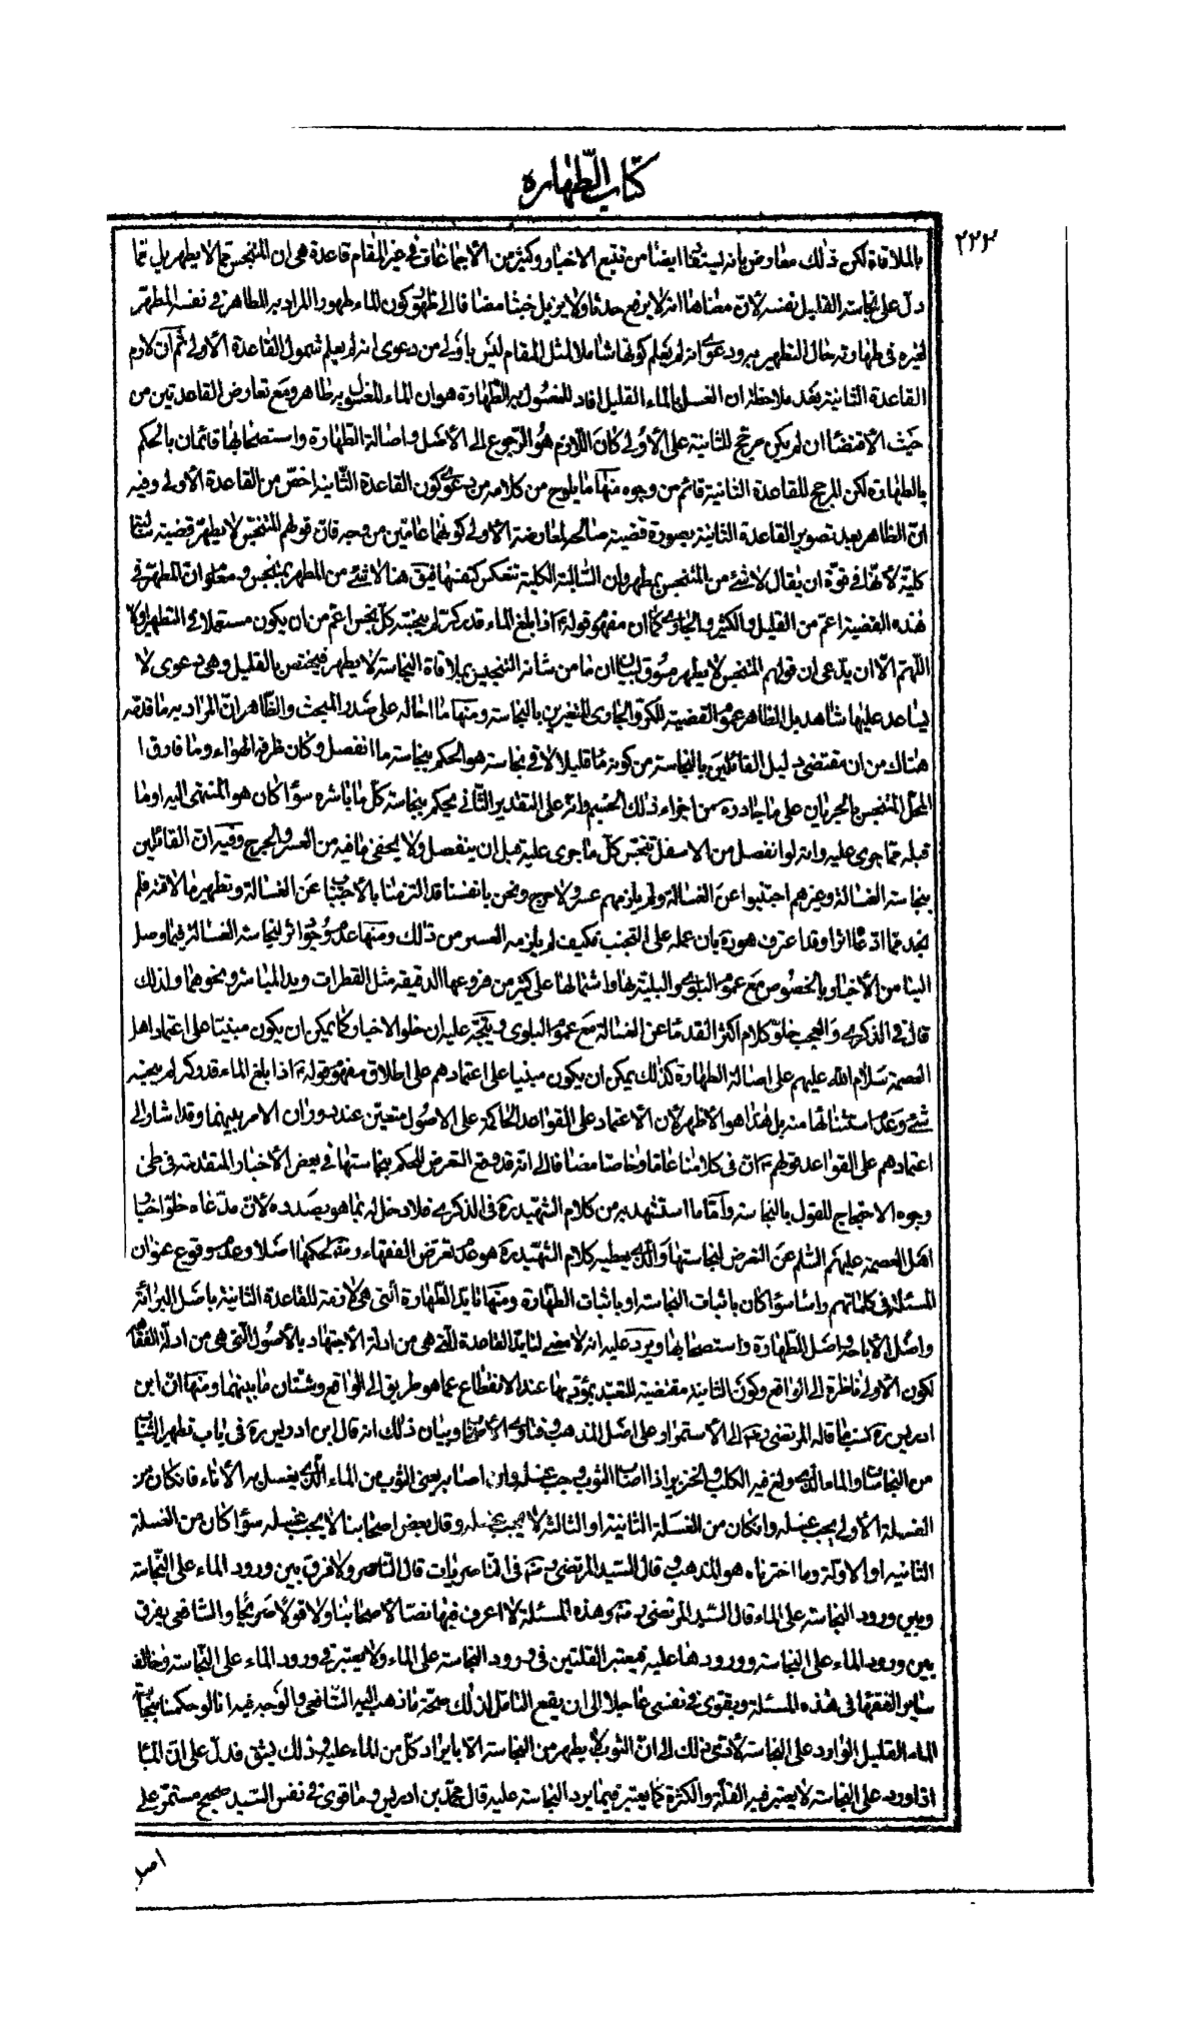 كتاب الطهارة
٢٢٣
بالملاقاة لكن ذلك معارض بانه يستفاد ايضا من تتبع الاخبار وكثير من الأجماعات في غير المقام قاعدة هي ان المتنجس مما لا يطهر بل مما
دل على نجاسة القليل نفسه لأن معناها انه لا يرفع حدثا ولا يزيل خبثا مضافا الى ظهور كون الماء طهورا المراد به الطاهر في نفسه المطهر
لغيره في طهارته حال التطهير به ودعوى انه لم يعلم كونها شاملا لمثل المقام ليس باولى من دعوى انه لم يعلم شمول القاعدة الأولى ثم ان لازم
القاعدة الثانية بعد ملاحظة ان الغسل بالماء القليل افاد للمغسول به الطهارة هو ان الماء المغسول به طاهر ومع تعارض القاعدتين من
حيث الأقتضاء ان لم يكن مرجح للثانية على الأولى كان اللازم هو الرجوع الى الأصل واصالة الطهارة واستصحابها قائمان بالحكم
بالطهارة لكن المرجح للقاعدة الثانية قائم من وجوه منها ما يلوح من كلامه من دعوى كون القاعدة الثانية اخص من القاعدة الأولى وفيه
ان الظاهر بعد تصوير القاعدة الثانية بصورة قضية صالحة لمعارضة الأولى كونهما عامين من وجه فان قولهم المتنجس لا يطهر قضية سالبة
كلية لأنها في قوة ان يقال لا شئ من المتنجس بمطهر وان السالبة الكلية تنعكس كنفسها فيق هنا لا شئ من المطهر بمتنجس ومعلوم ان المطهر في
هذه القضية اعم من القليل والكثير والجاري كما ان مفهوم قوله ع اذا بلغ الماء قدر كر لم ينجسه كل نجس اعم من ان يكون مستعملا في التطهير اولا
اللهم الا ان يدعى ان قولهم المتنجس لا يطهر مسوق لبيان ما من شانه التنجيس بملاقاة النجاسة لا يطهر فيختص بالقليل وهي دعوى لا
يساعد عليها شاهد بل الظاهر عموم القضية للكر والجاري المتغيرين بالنجاسة ومنها ما احاله على صدر المبحث والظاهر ان المراد به ما قدمه
هناك من ان مقتضى دليل القائلين بالنجاسة من كونه ماء قليلا لاقى نجاسة هو الحكم بنجاسة ما انفصل وكان ظرفه الهواء وما فارق ا
لمحل المتنجس بالجريان على ما جاوره من اجزاء ذلك الجسم وانه على التقدير الثاني يحكم بنجاسة كل ما باشره سواء كان هو المنتهى اليه او ما
قبله مما جرى عليه وانه لو انفصل من الاسفل تنجس كل ما جرى عليه قبل ان ينفصل ولا يخفى ما فيه من العسر والحرج وفيه ان القائلين
بنجاسة الغسالة وغيرهم اجتنبوا عن الغسالة ولم يلزمهم عسر ولا حرج ونحن بانفسنا قد التزمنا بالأجتناب عن الغسالة وتطهير ما لاقته فلم
نجد مما ادعاه اثرا وقد اعترف هو ره بان عمله على التجنب فكيف لم يلزمه العسر من ذلك ومنها عدم وجود اثر لنجاسة الغسالة فيما وصل
الينا من الأخبار بالخصوص مع عموم البلوى والبلية بها واشتمالها على كثير من فروعها الدقيقه مثل القطرات ويد المباشر ونحوهما ولذلك
قال في الذكرى والعجب خلو كلام اكثر القدماء عن الغسالة مع عموم البلوى ويتجه عليه ان خلو الاخبار كما يمكن ان يكون مبنيا على اعتماد اهل
العصمة سلام الله عليهم على اصالة الطهارة كذلك يمكن ان يكون مبنيا على اعتمادهم على اطلاق مفهوم قوله ع اذا بلغ الماء قدر كر لم ينجسه
شئ وعدم استثنائها منه بل هذا هو الأظهر لأن الأعتماد على القواعد الحاكمة على الاصول متعين عند دوران الامر بينهما وقد اشار الى
اعتمادهم على القواعد قولهم ع ان في كلامنا عاما وخاصا مضافا الى انه قد وقع التعرض للحكم بنجاستها في بعض الأخبار المتقدمة في طي
وجوه الاحتجاج للقول بالنجاسة واما ما استشهد به من كلام الشهيد ره في الذكرى فلا دخل له بما هو بصدده لأن مدعاه خلو اخبار
اهل العصمة عليهم السلم عن التعرض لنجاستها والذي يعطيه كلام الشهيد ره هو عدم تعرض الفقهاء رضه لحكمها اصلا وعدم وقوع عنوان
المسئلة في كلماتهم راسا سواء كان باثبات النجاسة او باثبات الطهارة ومنها تايد الطهارة التي هي لازمة للقاعدة الثانية باصل البرائة
واصل الأباحة واصل الطهارة واستصحابها ويرد عليه انه لا معنى لتايد القاعدة التي هي من ادلة الأجتهاد بالأصول التي هي من ادلة الفقاهة
لكون الأولى ناظرة الى الواقع وكون الثانية مقتضية للتعبد بمؤديها عند الانقطاع عما هو طريق الى الواقع وشتان ما بينهما ومنها ان ابن
ادريس ره نسب ما قاله المرتضى رضه الى الأستمرار على اصل المذهب وفتاوى الأصحاب وبيان ذلك انه قال ابن ادريس ره في باب تطهير الثياب
من النجاسات والماء الذي ولغ فيه الكلب والخنزير اذا اصاب الثوب وجب غسله وان اصابه يعنى الثوب من الماء الذي يغسل به الأناء فان كان من
الغسلة الأولى يجب غسله وان كان من الغسلة الثانية او الثالثة لا يجب غسله وقال بعض اصحابنا لا يجب غسله سواء كان من الغسلة
الثانيه او الاولة وما اخترناه هو المذهب قال السيد المرتضى رضه في الناصريات قال الناصر ولا فرق بين ورود الماء على النجاسة
وبين ورود النجاسة على الماء قال السيد المرتضى رضه وهذه المسئلة لا اعرف فيها نصا لأصحابنا ولا قولا صريحا والشافعي يفرق
بين ورود الماء على النجاسة وورودها عليه فيعتبر القلتين في ورود النجاسة على الماء ولا يعتبر في ورود الماء على النجاسة وخالفه
سائر الفقهاء في هذه المسئلة ويقوى في نفسي عاجلا الى ان يقع التامل لذلك صحة ما ذهب اليه الشافعي والوجه فيه انا لو حكمنا بنجاسة
الماء القليل الوارد على النجاسة لأدى ذلك الى ان الثوب لا يطهر من النجاسة الا بايراد كر من الماء عليه وذلك يشق فدل على ان الماء
اذا ورد على النجاسة لا يعتبر فيه القلة والكثرة كما يعتبر فيما يرد النجاسة عليه قال محمد بن ادريس وما قوى في نفس السيد صحيح مستمر على
اصل